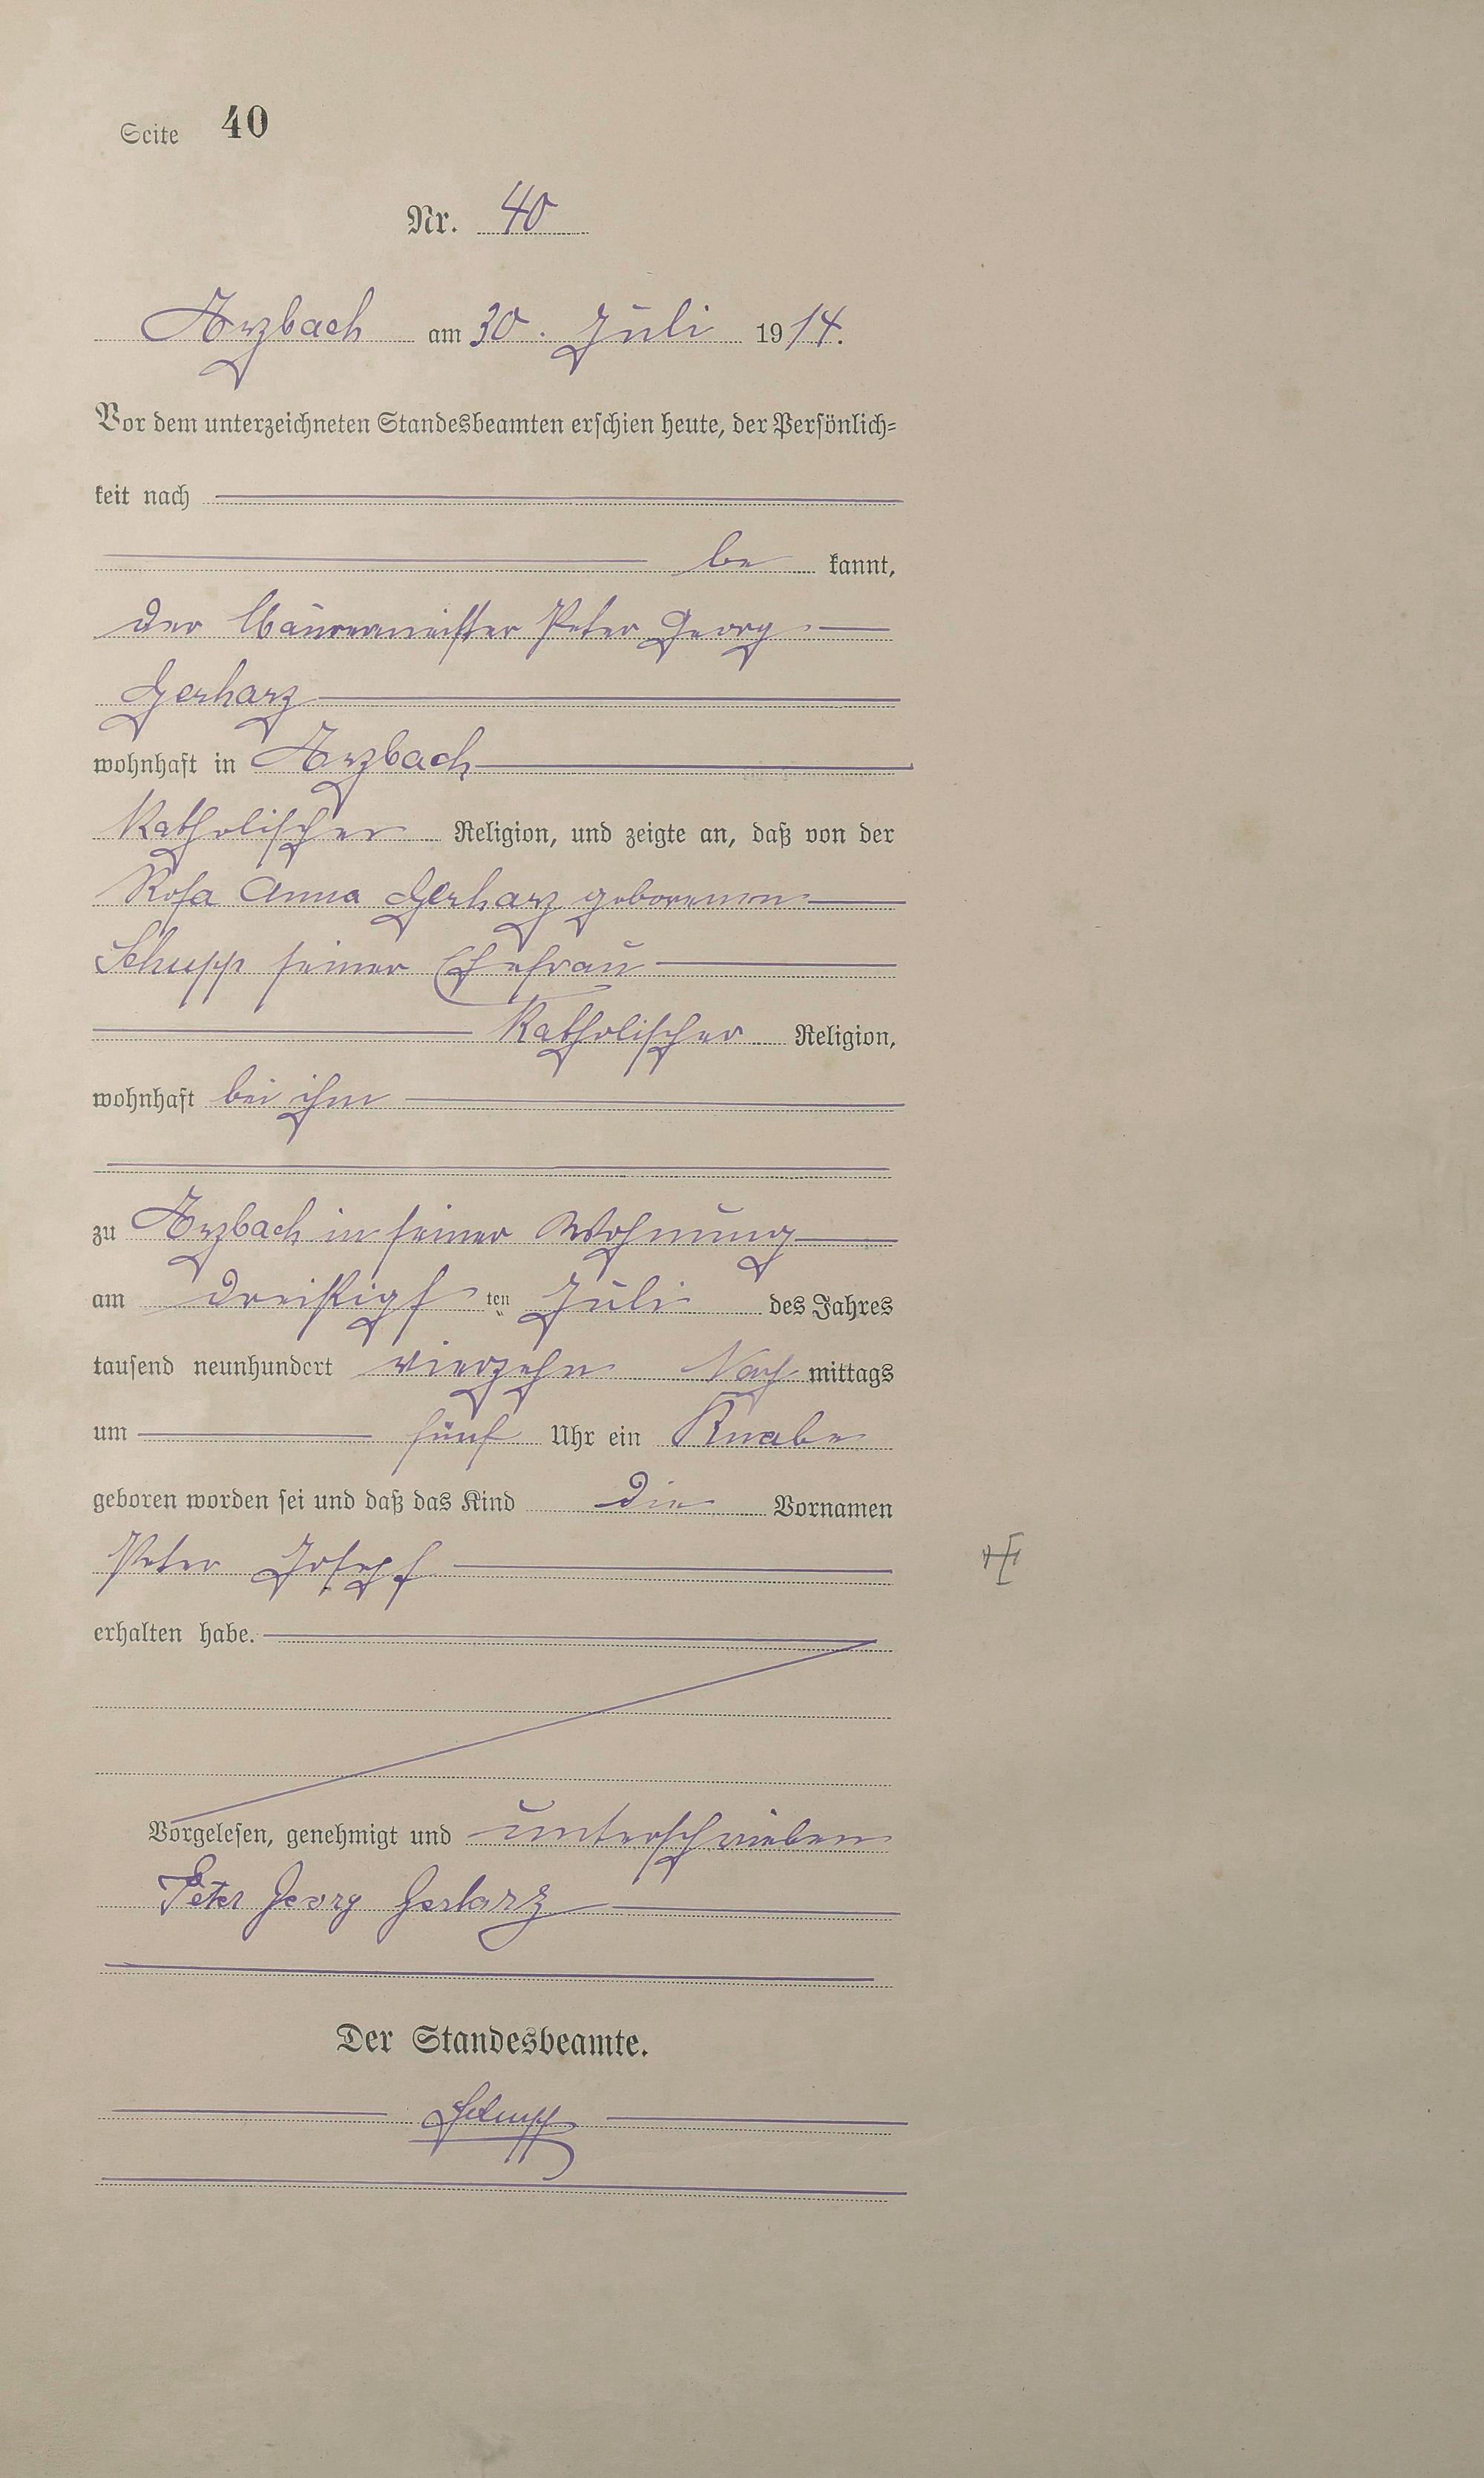 Seite 40
Nr. 40
Arzbach am 30. Juli 1914.
Vor dem unterzeichneten Standesbeamten erschien heute, der Persönlich=
keit nach
be kannt,
der Maurermeister Peter Georg
Gerharz
wohnhaft in Arzbach
Katholischer Religion, und zeigte an, daß von der
Rosa Anna Gerharz geborenen
Schupp seiner Ehefrau
Katholischer Religion,
wohnhaft bei ihm
zu Arzbach in seiner Wohnung
am dreißigsten Juli des Jahres
tausend neunhundert vierzehn Nachmittags
um fünf Uhr ein Knabe
geboren worden sei und daß das Kind die Vornamen
Peter Josef
erhalten habe.
Vorgelesen, genehmigt und unterschrieben
Peter Georg Gerharz
Der Standesbeamte.
Schupp